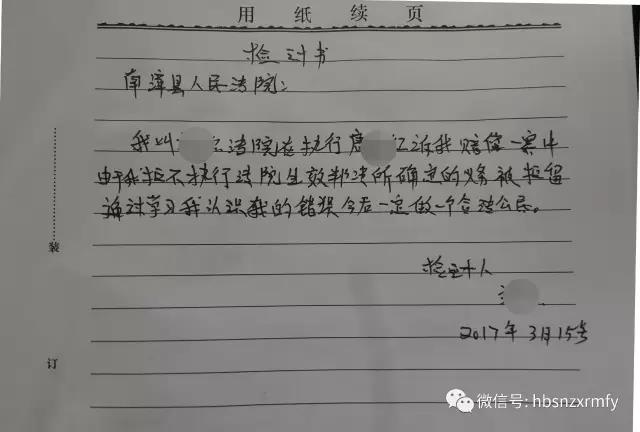 用纸续页
检讨书
南漳县人民法院:
我叫 法院在执行唐 诉我赔偿一案中
由于我拒不执行法院生效判决所确定的义务被拒留
通过学习我认识我的错误今后一定做一个合法公民。
检讨人
2017年3月15号
装
订
微信号: hbsnzxrmfy